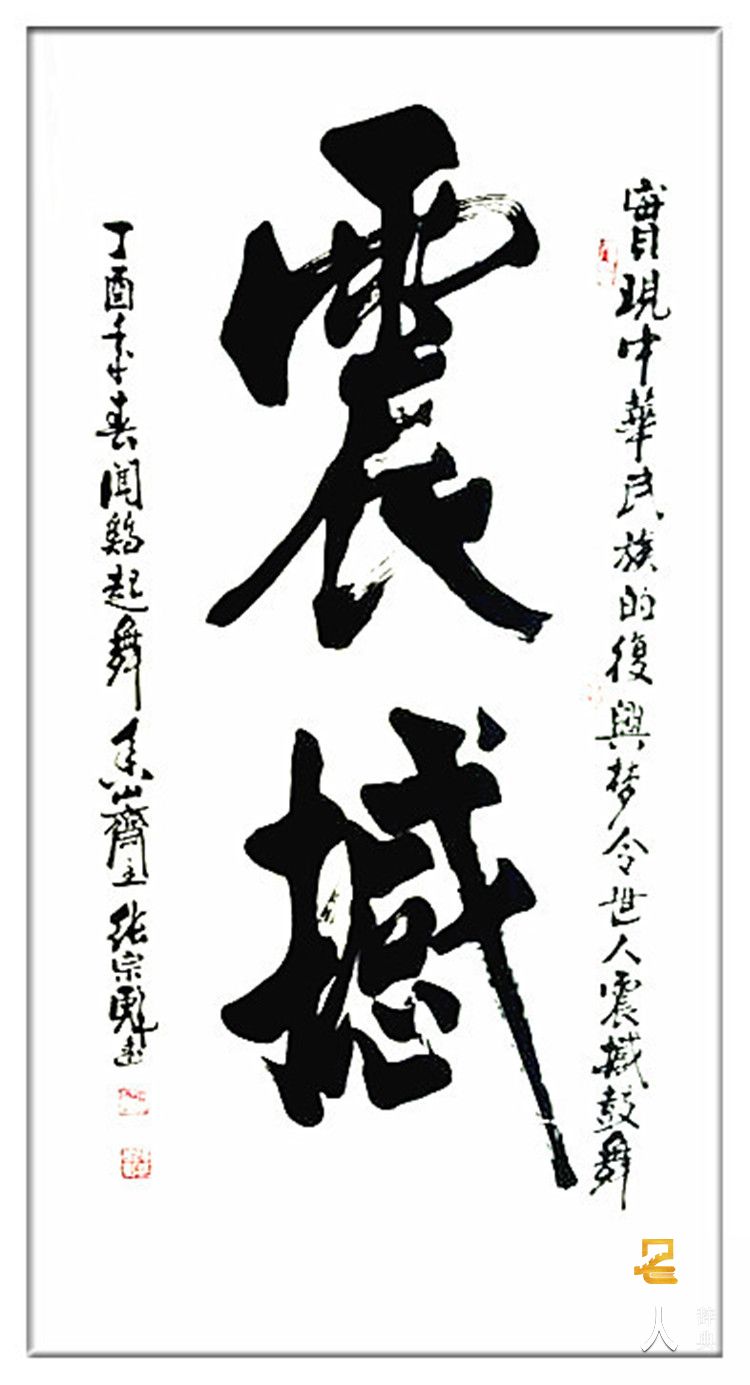 實現中華民族的復興梦令世人震撼鼓舞
震撼
丁酉季春闻鷄起舞 山齋主 张宗 书
人
辞典